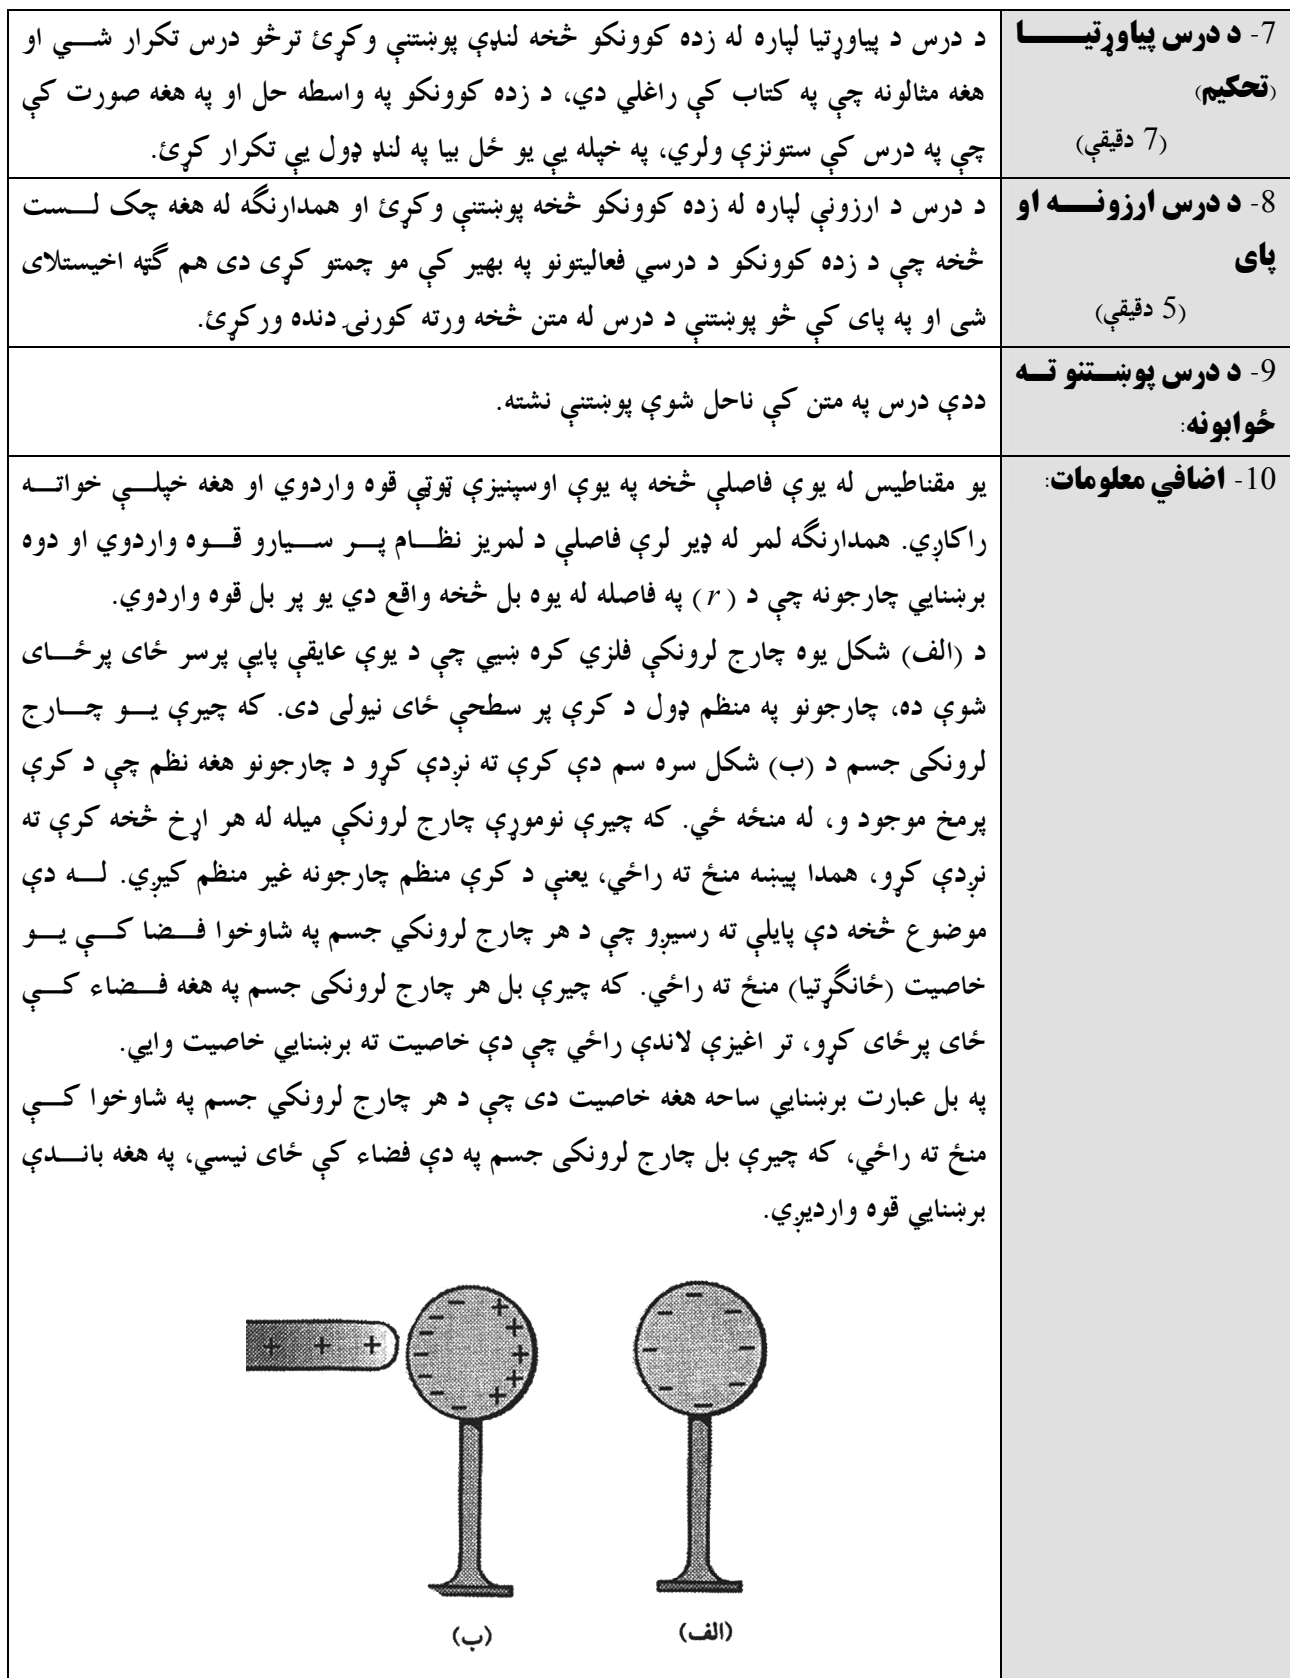 7- د درس پیاوړتیا
(تحکیم)
(7 دقیقې)
د درس د پیاوړتیا لپاره له زده کوونکو څخه لنډې پوښتنې وکړئ ترڅو درس تکرار شي او
هغه مثالونه چې په کتاب کې راغلي دي، د زده کوونکو په واسطه حل او په هغه صورت کې
چې په درس کې ستونزې ولري، په خپله یې یو ځل بیا په لنډ ډول یې تکرار کړئ.
8- د درس ارزونه او
پای
(5 دقیقې)
د درس د ارزونې لپاره له زده کوونکو څخه پوښتنې وکړئ او همدارنگه له هغه چک لست
څخه چې د زده کوونکو د درسي فعالیتونو په بهیر کې مو چمتو کړی دی هم گټه اخیستلای
شی او په پای کې څو پوښتنې د درس له متن څخه ورته کورنۍ دنده ورکړئ.
9- د درس پوښتنو ته
ځوابونه:
ددې درس په متن کې ناحل شوې پوښتنې نشته.
10- اضافي معلومات:
یو مقناطیس له یوې فاصلې څخه په یوې اوسپنیزې ټوټې قوه واردوي او هغه خپلې خواته
راکاږي. همدارنگه لمر له ډیر لرې فاصلې د لمریز نظام پر سیارو قوه واردوي او دوه
برښنایي چارجونه چې د (r) په فاصله له یوه بل څخه واقع دي یو پر بل قوه واردوي.
د (الف) شکل یوه چارج لرونکې فلزي کره ښیي چې د یوې عایقې پایې پرسر ځای پرځای
شوې ده، چارجونو په منظم ډول د کرې پر سطحې ځای نیولی دی. که چیرې یو چارج
لرونکی جسم د (ب) شکل سره سم دې کرې ته نږدې کړو د چارجونو هغه نظم چې د کرې
پرمخ موجود و، له منځه ځي. که چیرې نوموړې چارج لرونکې میله له هر اړخ څخه کرې ته
نږدې کړو، همدا پیښه منځ ته راځي، یعنې د کرې منظم چارجونه غیر منظم کیږي. له دې
موضوع څخه دې پایلې ته رسیږو چې د هر چارج لرونکي جسم په شاوخوا فضا کې یو
خاصیت (ځانگړتیا) منځ ته راځي. که چیرې بل هر چارج لرونکی جسم په هغه فضاء کې
ځای پرځای کړو، تر اغیزې لاندې راځي چې دې خاصیت ته برښنایي خاصیت وایي.
په بل عبارت برښنایي ساحه هغه خاصیت دی چې د هر چارج لرونکي جسم په شاوخوا کې
منځ ته راځي، که چیرې بل چارج لرونکی جسم په دې فضاء کې ځای نیسي، په هغه باندې
برښنایي قوه واردیږي.
(الف)
(ب)